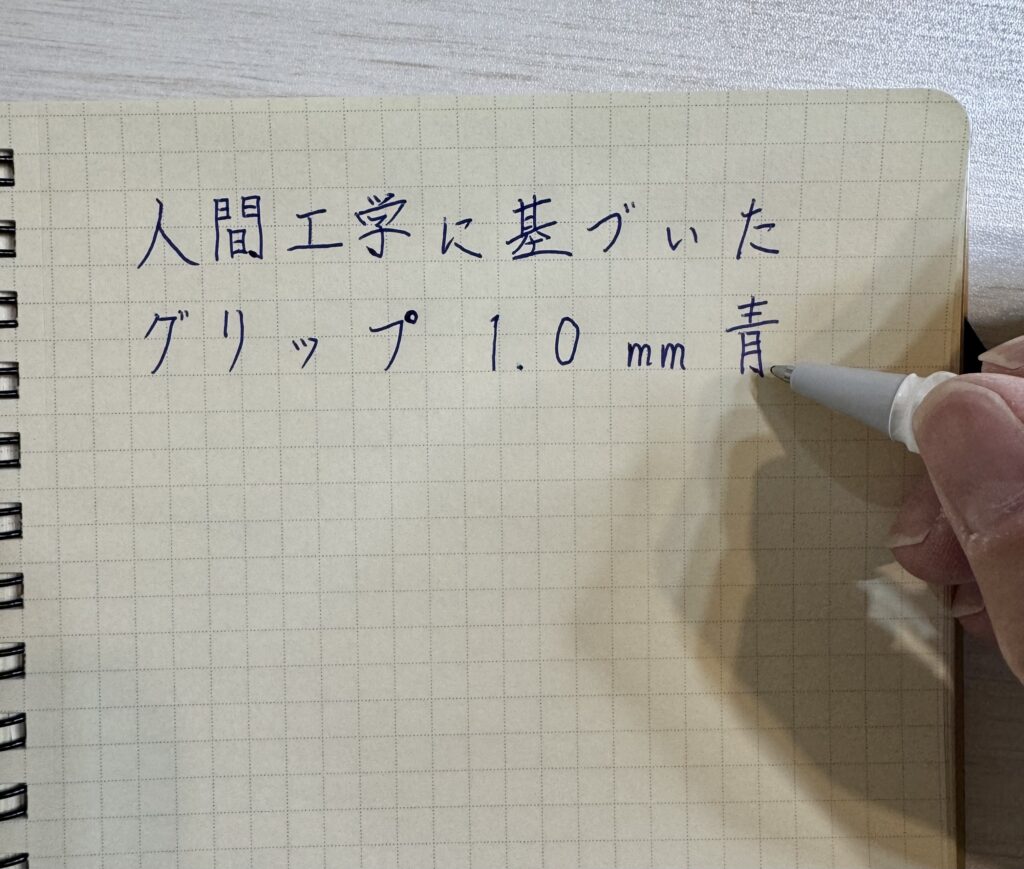 人間工学に基づいた
グリップ 1.0 mm 青